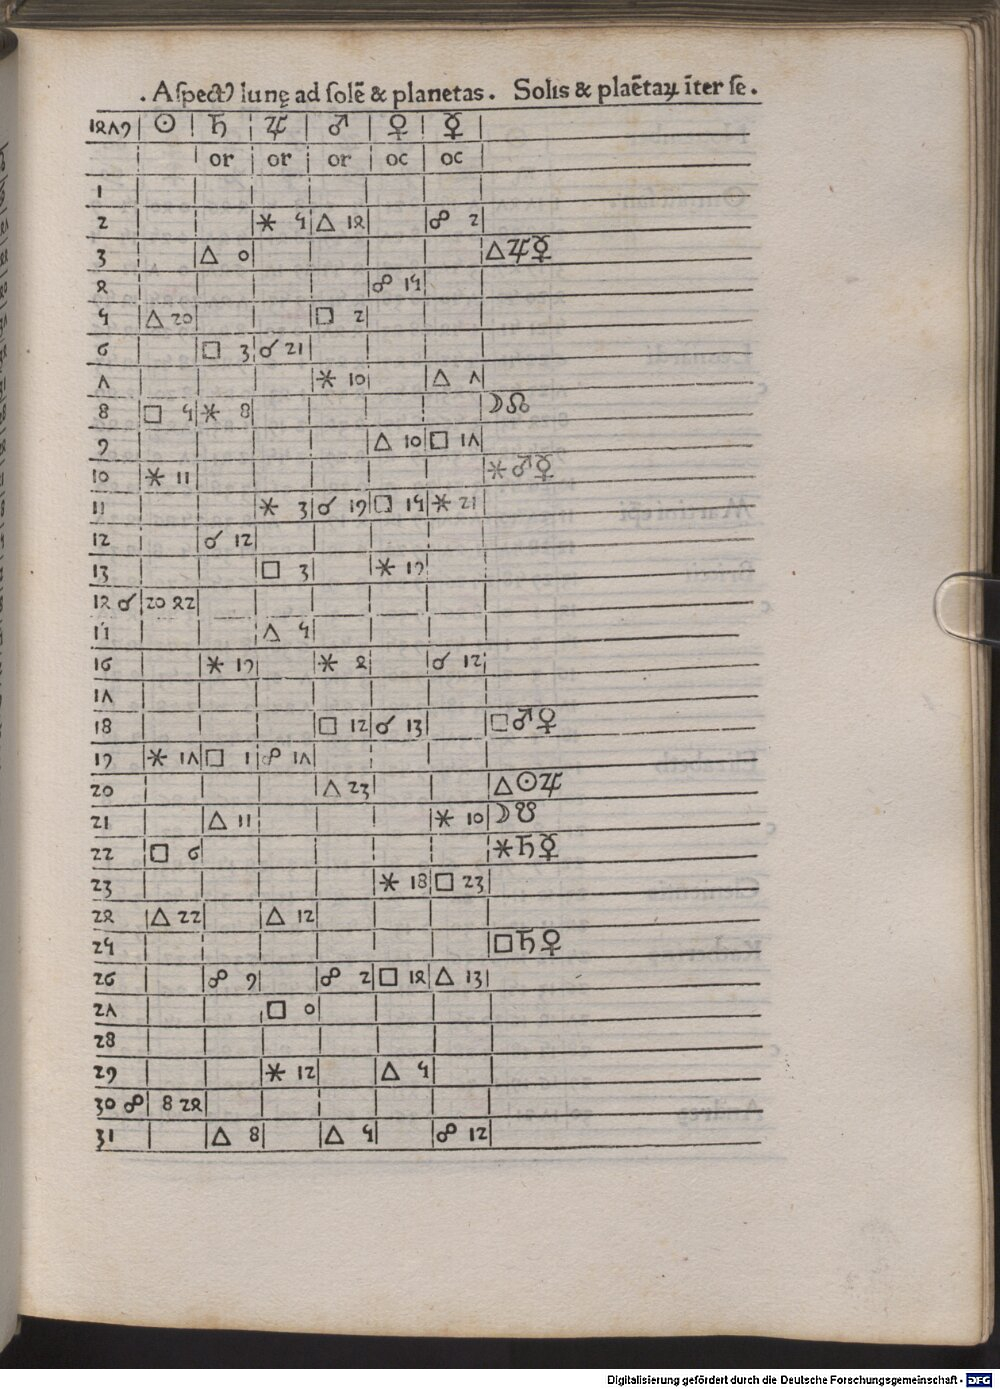 . Aſpectꝰ lunę ad ſolē & planetas . Solis & plaētaꝝ īter ſe .
1479 ☉ ♄ ♃ ♂ ♀ ☿
or or or oc oc
1
2 ⚹ 5 △ 14 ☍ 2
3 △ 0 △♃☿
4 ☍ 15
5 △ 20 □ 2
6 □ 3 ☌ 21
7 ⚹ 10 △ 7
8 □ 5 ⚹ 8 ☽☊
9 △ 10 □ 17
10 ⚹ 11 ⚹♂☿
11 ⚹ 3 ☌ 19 □ 15 ⚹ 21
12 ☌ 12
13 □ 3 ⚹ 19
14 ☌ 20 42
15 △ 5
16 ⚹ 19 ⚹ 4 ☌ 12
17
18 □ 12 ☌ 13 □♂♀
19 ⚹ 17 □ 1 ☍ 17
20 △ 23 △☉♃
21 △ 11 ⚹ 10 ☽☋
22 □ 6 ⚹♄☿
23 ⚹ 18 □ 23
24 △ 22 △ 12
25 □♄♀
26 ☍ 9 ☍ 2 □ 14 △ 13
27 □ 0
28
29 ⚹ 12 △ 5
30 ☍ 8 24
31 △ 8 △ 5 ☍ 12
Digitalisierung gefördert durch die Deutsche Forschungsgemeinschaft - DFG